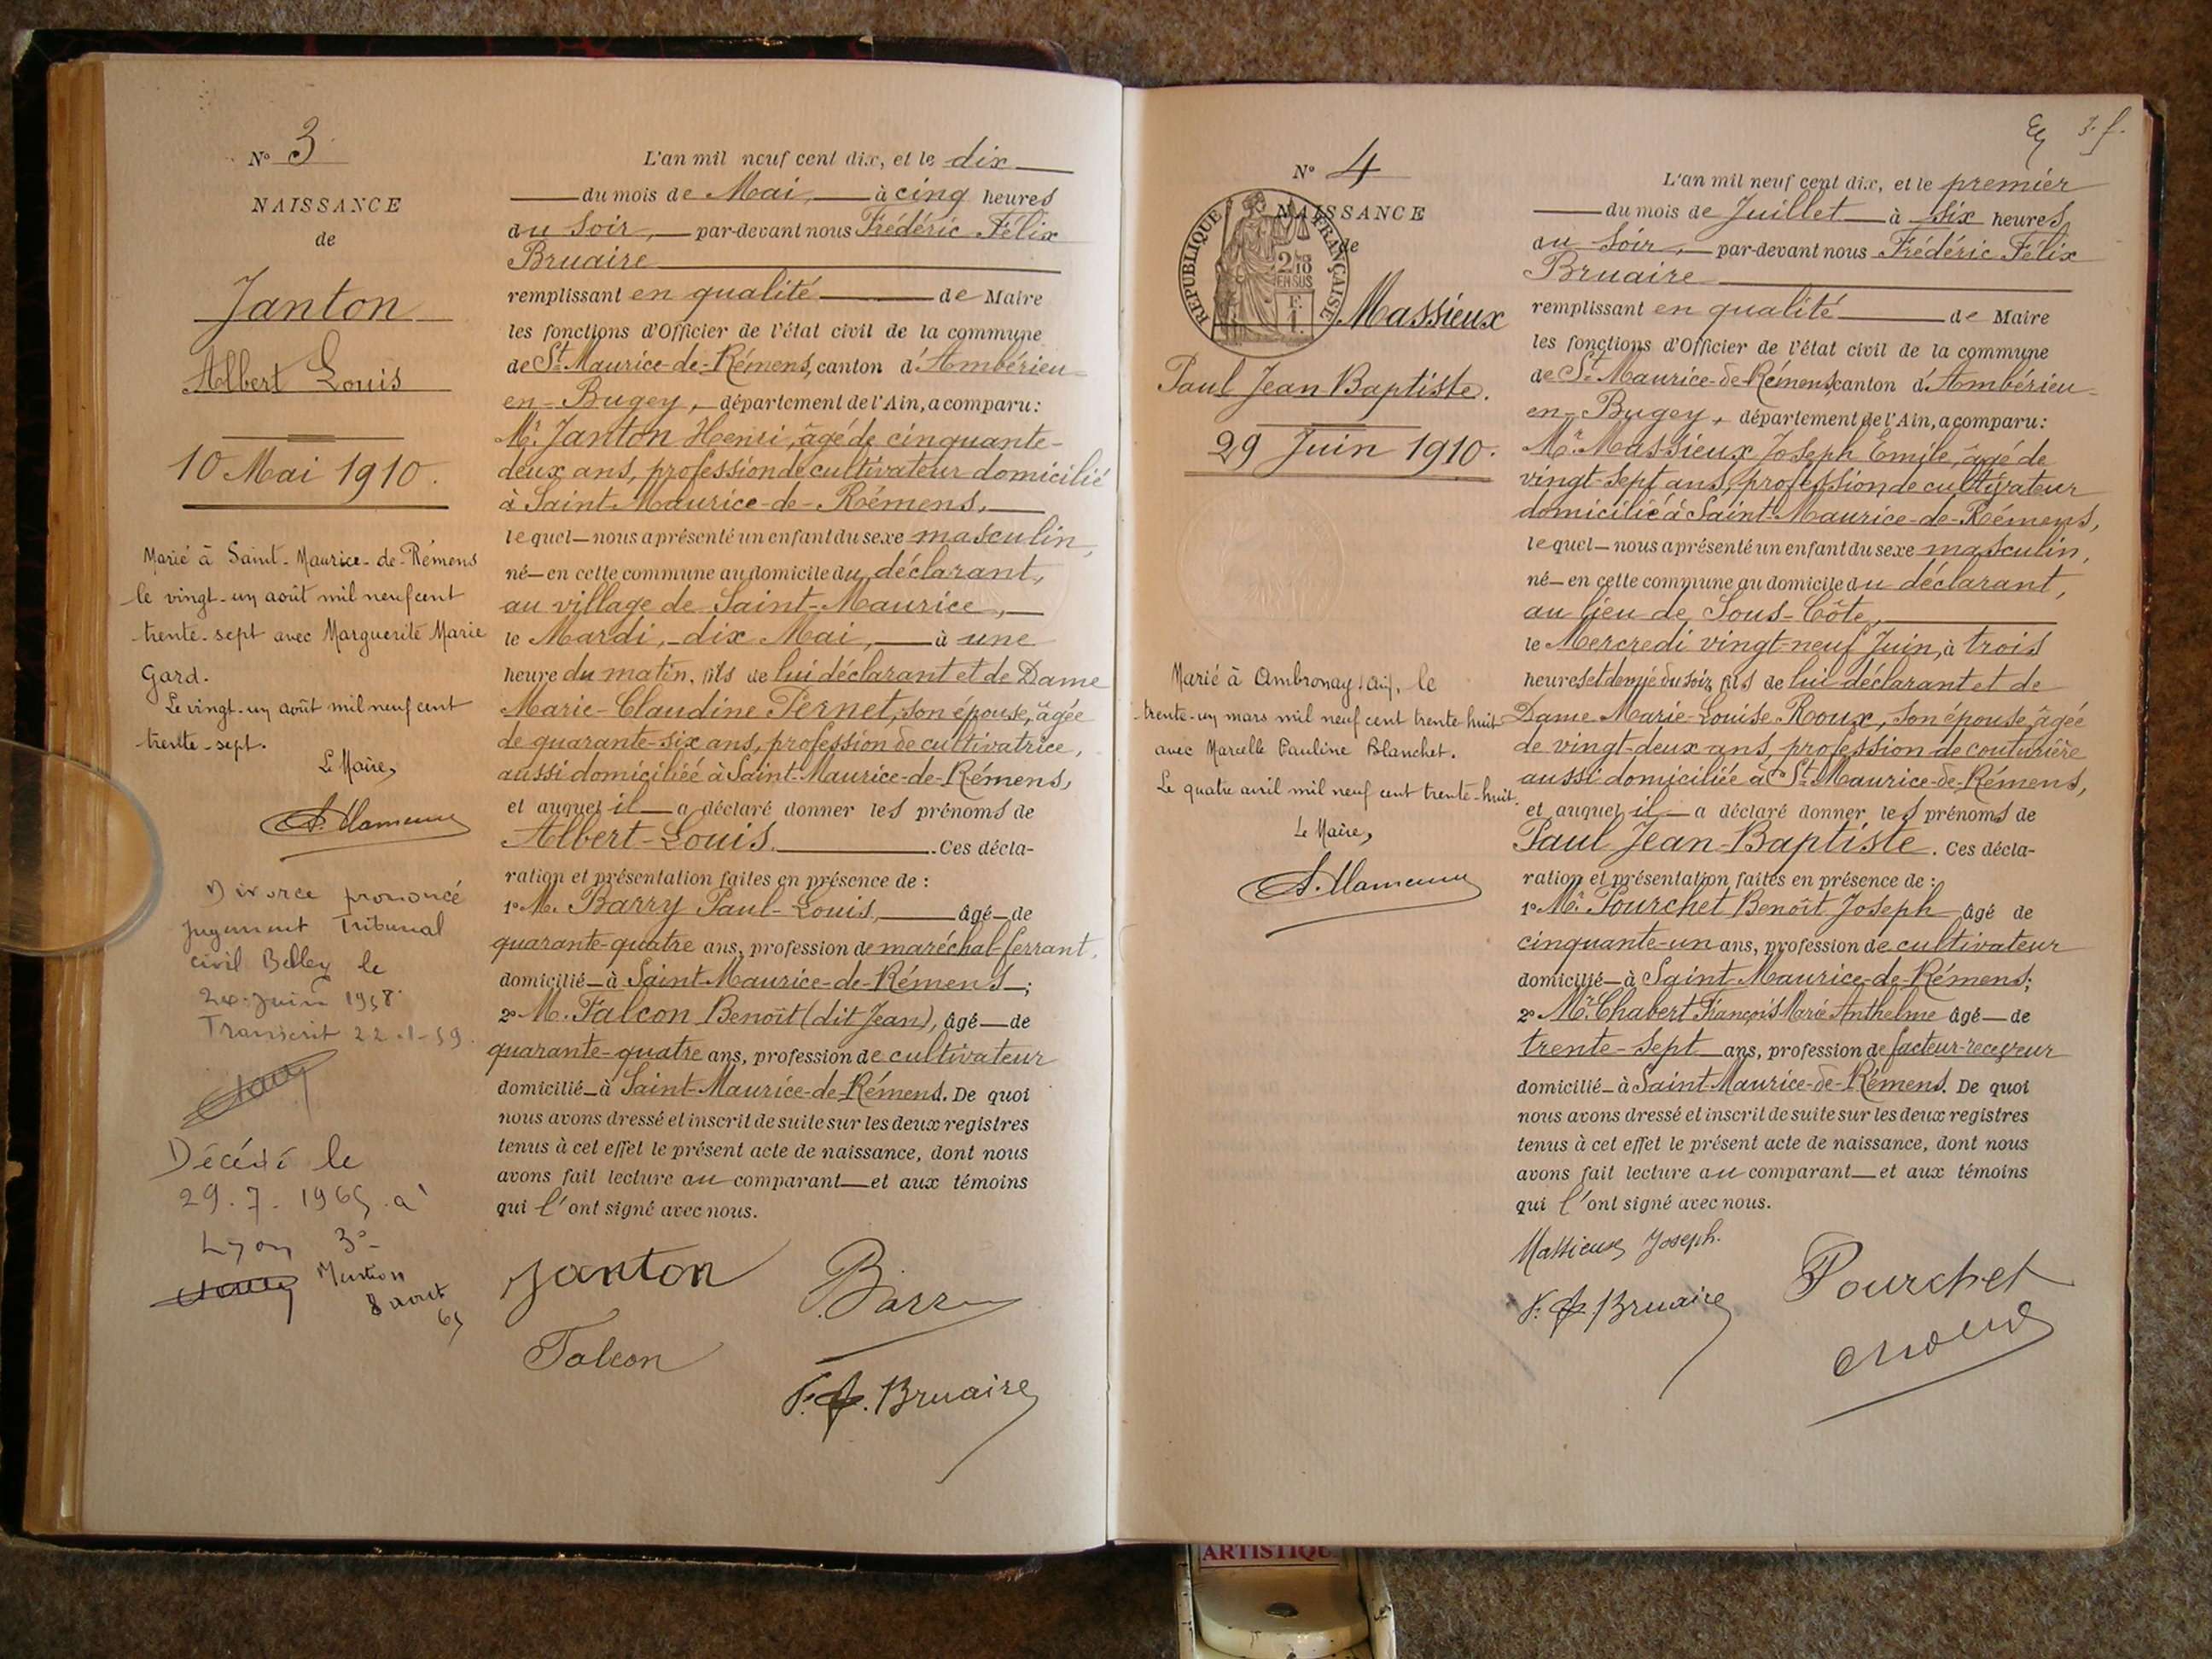 N° 3
NAISSANCE
de
Janton
Albert Louis
10 Mai 1910.
Marié à Saint-Maurice-de-Rémens
le vingt-un août mil neuf cent
trente-sept avec Marguerite Marie
Gard.
Le vingt-un août mil neuf cent
trente-sept.
Le Maire,
Divorce prononcé
jugement Tribunal
civil Belley le
Juin 1958
Transcrit 22-1-59
Décédé le
29.7.1965 à
Lyon 3e
Mention
8 août
65
L'an mil neuf cent dix, et le dix
du mois de Mai, à cinq heures
du Soir, par-devant nous Frédéric Félix
Bruaire
remplissant en qualité de Maire
les fonctions d'Officier de l'état civil de la commune
de St Maurice-de-Rémens, canton d'Ambérieu-
en-Bugey, département de l'Ain, a comparu:
Mr. Janton Henri, âgé de cinquante-
deux ans, profession de cultivateur domicilié
à Saint-Maurice-de-Rémens,
lequel nous a présenté un enfant du sexe masculin,
né en cette commune au domicile du déclarant,
au village de Saint-Maurice,
le Mardi, dix Mai, à une
heure du matin, fils de lui déclarant et de Dame
Marie-Claudine Pernet, son épouse, âgée
de quarante-six ans, profession de cultivatrice,
aussi domiciliéé à Saint-Maurice-de-Rémens,
et auquel il a déclaré donner les prénoms de
Albert-Louis. Ces décla-
ration et présentation faites en présence de :
1° M. Barry Paul-Louis, âgé de
quarante-quatre ans, profession de maréchal-ferrant,
domicilié à Saint-Maurice-de-Rémens;
2° M. Falcon Benoît (dit Jean), âgé de
quarante-quatre ans, profession de cultivateur
domicilié à Saint-Maurice-de-Rémens. De quoi
nous avons dressé et inscrit de suite sur les deux registres
tenus à cet effet le présent acte de naissance, dont nous
avons fait lecture au comparant et aux témoins
qui l'ont signé avec nous.
Janton
Barry
Falcon
F. F. Bruaire
3. f.
N° 4
NAISSANCE
de
REPUBLIQUE FRANÇAISE
2/10 EN SUS
Massieux
Paul Jean-Baptiste.
29 Juin 1910.
Marié à Ambronay, Ain, le
trente-un mars mil neuf cent trente-huit
avec Marcelle Pauline Blanchet.
Le quatre avril mil neuf cent trente-huit.
Le Maire,
L'an mil neuf cent dix, et le premier
du mois de Juillet à six heures
du Soir, par-devant nous Frédéric Félix
Bruaire
remplissant en qualité de Maire
les fonctions d'Officier de l'état civil de la commune
de St Maurice-de-Rémens, canton d'Ambérieu-
en-Bugey, département de l'Ain, a comparu:
Mr. Massieux Joseph Emile, âgé de
vingt-sept ans, profession de cultivateur
domicilié à Saint-Maurice-de-Rémens,
lequel nous a présenté un enfant du sexe masculin,
né en cette commune au domicile du déclarant,
au lieu de Sous-Côte,
le Mercredi vingt-neuf Juin, à trois
heures et demie du soir, fils de lui déclarant et de
Dame Marie-Louise Roux, son épouse, âgée
de vingt-deux ans, profession de couturière
aussi domiciliée à St Maurice-de-Rémens,
et auquel il a déclaré donner les prénoms de
Paul Jean-Baptiste. Ces décla-
ration et présentation faites en présence de :
1° Mr. Pourchet Benoît Joseph âgé de
cinquante-un ans, profession de cultivateur
domicilié à Saint-Maurice-de-Rémens;
2° Mr. Chabert François Marie Anthelme âgé de
trente-sept ans, profession de facteur-receveur
domicilié à Saint-Maurice-de-Rémens. De quoi
nous avons dressé et inscrit de suite sur les deux registres
tenus à cet effet le présent acte de naissance, dont nous
avons fait lecture au comparant et aux témoins
qui l'ont signé avec nous.
Massieux Joseph.
Pourchet
F. F. Bruaire
ARTISTIQUE